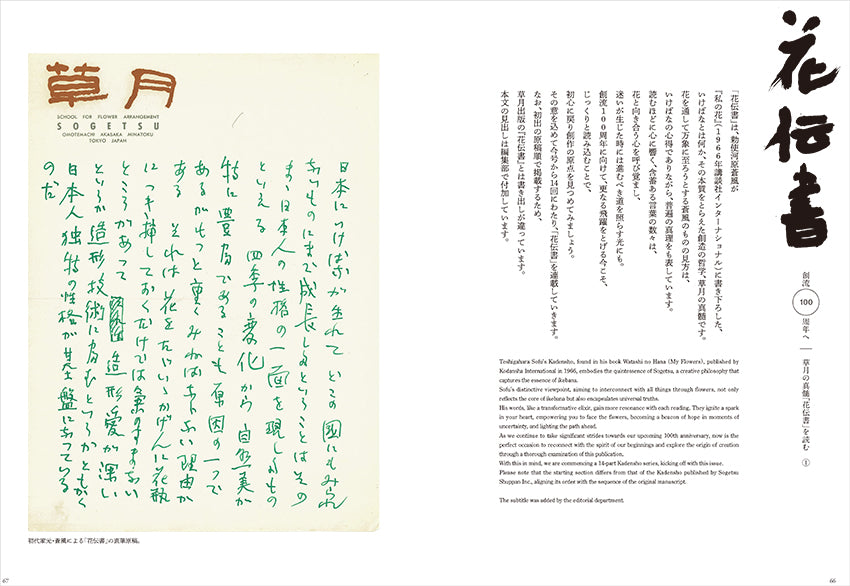 花伝書
創流
100
周年へ
草月の真髄『花伝書』を読む
①
「花伝書」は、勅使河原蒼風が
『私の花』(1966年講談社インターナショナル)に書き下ろした、
いけばなとは何か、その本質をとらえた創造の哲学、草月の真髄です。
花を通して万象に至ろうとする蒼風のものの見方は、
いけばなの心得でありながら、普遍の真理をも表しています。
読むほどに心に響く、含蓄ある言葉の数々は、
花と向き合う心を呼び覚まし、
迷いが生じた時には進むべき道を照らす光にも。
創流100周年に向けて、更なる飛躍をとげる今こそ、
じっくりと読み込むことで、
初心に戻り創作の原点を見つめてみましょう。
その意を込めて今号から14回にわたり、「花伝書」を連載していきます。
なお、初出の原稿順で掲載するため、
草月出版の『花伝書』とは書き出しが違っています。
本文の見出しは編集部で付加しています。
Teshigahara Sofu's Kadensho, found in his book Watashi no Hana (My Flowers), published by
Kodansha International in 1966, embodies the quintessence of Sogetsu, a creative philosophy that
captures the essence of ikebana.
Sofu's distinctive viewpoint, aiming to interconnect with all things through flowers, not only
reflects the core of ikebana but also encapsulates universal truths.
His words, like a transformative elixir, gain more resonance with each reading. They ignite a spark
in your heart, empowering you to face the flowers, becoming a beacon of hope in moments of
uncertainty, and lighting the path ahead.
As we continue to take significant strides towards our upcoming 100th anniversary, now is the
perfect occasion to reconnect with the spirit of our beginnings and explore the origin of creation
through a thorough examination of this publication.
With this in mind, we are commencing a 14-part Kadensho series, kicking off with this issue.
Please note that the starting section differs from that of the Kadensho published by Sogetsu
Shuppan Inc., aligning its order with the sequence of the original manuscript.
The subtitle was added by the editorial department.
66
草月
SCHOOL FOR FLOWER ARRANGEMENT
SOGETSU
OMOTEMACHI AKASAKA MINATOKU
TOKYO JAPAN
日本にいけばなが生れて いどこの国にもみられ
ないものにまで成長しるということはその
まゝ日本人の性格の一面を現しるもの
といえる 四季の変化から自然美が
特に豊富であることも原因の一つで
あるがもっと重くみねばならない理由が
ある それは花をただいゝかげんに花瓶
につきゝ挿しておくだけでは気のすまない
ところがあって 造形愛が深い
というか造形技術に富むというかともかく
日本人独特の性格が基盤になっている
のだ
初代家元・蒼風による「花伝書」の直筆原稿。
67